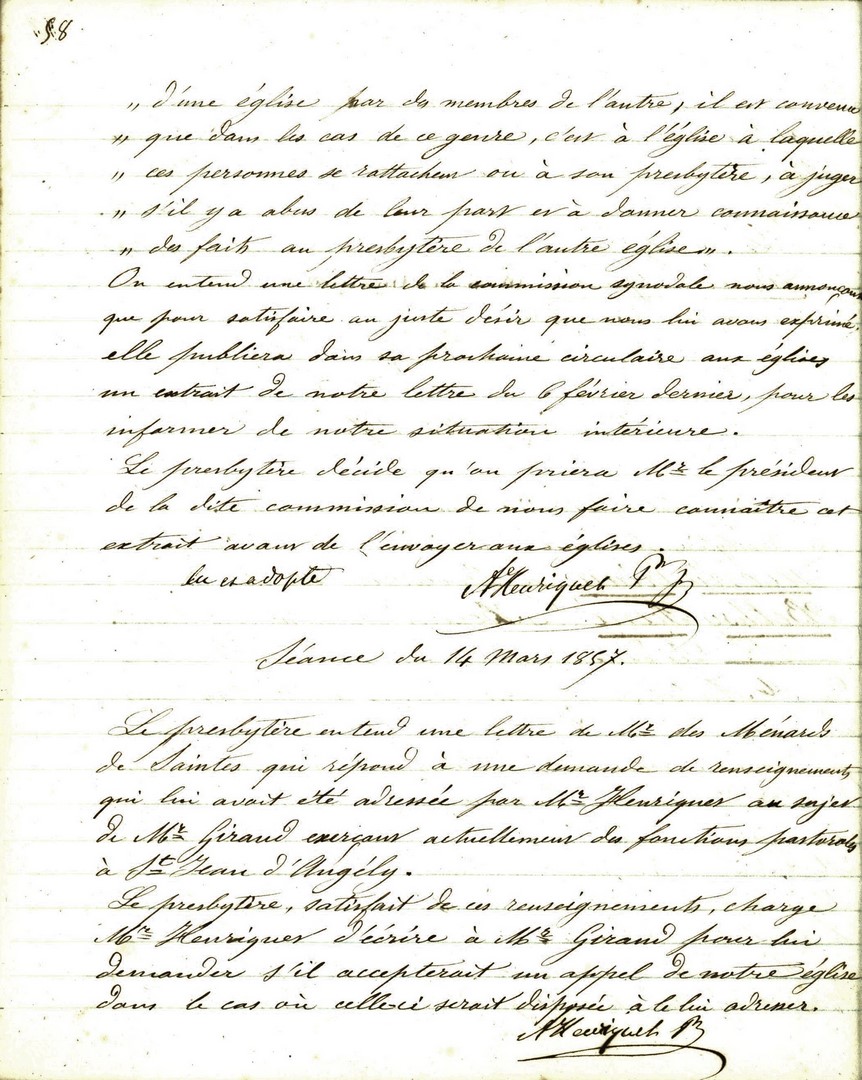 58
„ d'une église par des membres de l'autre, il est convenu
„ que dans les cas de ce genre, c'est à l'église à laquelle
„ ces personnes se rattachent ou à son presbytère, à juger
„ s'il y a abus de leur part et à donner connaissance
„ des faits au presbytère de l'autre église „.
On entend une lettre de la commission synodale nous annonçant
que pour satisfaire au juste désir que nous lui avons exprimé,
elle publiera dans sa prochaine circulaire aux églises
un extrait de notre lettre du 6 février dernier, pour les
informer de notre situation intérieure.
Le presbytère décide qu'on priera Mr le président
de la dite commission de nous faire connaître cet
extrait avant de l'envoyer aux églises.
lu et adopté
A Henriquet Pr
Séance du 14 Mars 1857.
Le presbytère entend une lettre de Mr des Ménards
de Saintes qui répond à une demande de renseignements
qui lui avait été adressée par Mr Henriquet au sujet
de Mr Giraud exerçant actuellement des fonctions pastorales
à St Jean d'Angély.
Le presbytère, satisfait de ces renseignements, charge
Mr Henriquet d'écrire à Mr Giraud pour lui
demander s'il accepterait un appel de notre église
dans le cas où celle ci serait disposée à le lui adresser.
A Henriquet Pr